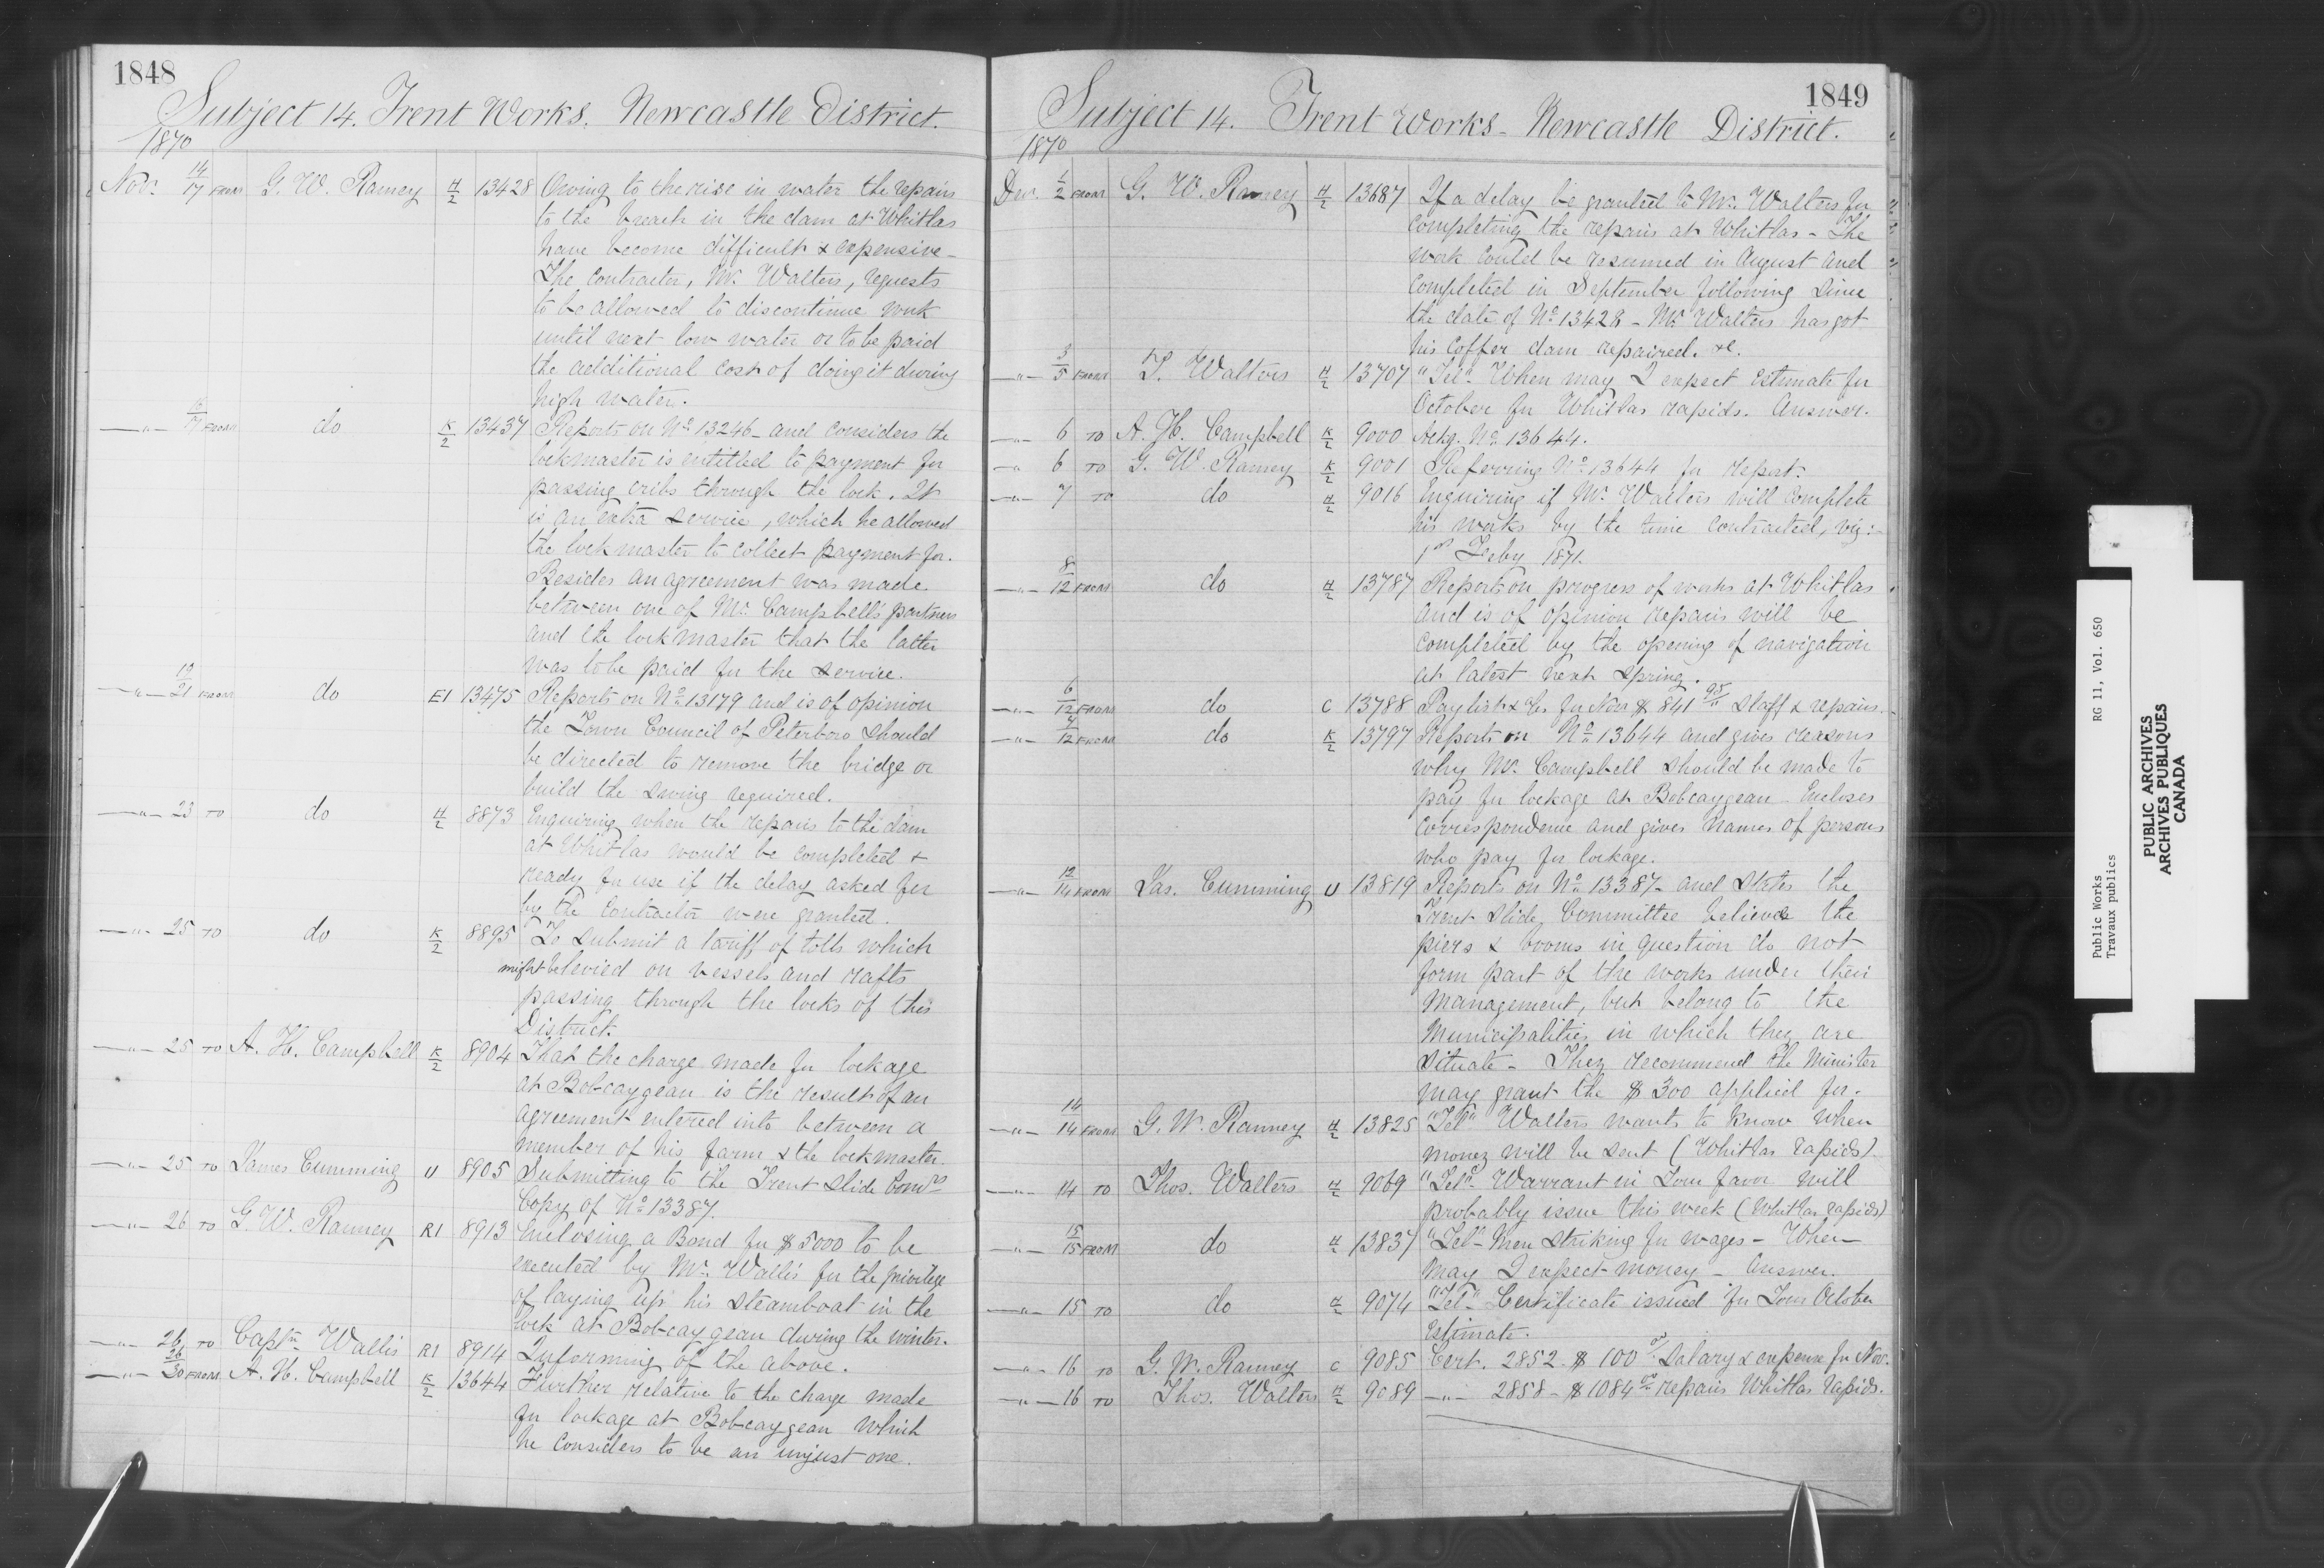 1848
Subject 14. Trent Works. Newcastle District.
1870
Nov. 14/17 FROM G. W. Ranney H/2 13428 Owing to the rise in water the repairs
to the breach in the dam at Whitlas
have become difficult & expensive –
The contractor, Mr. Walters, requests
to be allowed to discontinue work
until next low water or to be paid
the additional cost of doing it during
high water.
—"— 17 FROM do K/2 13437 Reports on No 13246 – and considers the
lockmaster is entitled to payment for
passing cribs through the lock. It
is an extra service, which he allowed
the lockmaster to collect payment for.
Besides an agreement was made
between one of Mr. Campbell's partners
and the lockmaster that the latter
was to be paid for the service.
—"— 19/21 FROM do E1 13475 Reports on No 13179 and is of opinion
the Town Council of Peterboro should
be directed to remove the bridge or
build the swing required.
—"— 23 TO do H/2 8873 Enquiring when the repairs to the dam
at Whitlas would be completed &
ready for use if the delay asked for
by the Contractor were granted.
—"— 25 TO do K/2 8895 To submit a tariff of tolls which
might be levied on vessels and rafts
passing through the locks of this
District.
—"— 25 TO A. H. Campbell K/2 8904 That the charge made for lockage
at Bobcaygean is the result of an
agreement entered into between a
member of his farm & the lockmaster.
—"— 25 TO James Cumming U 8905 Submitting to the Trent Slide Comrs
Copy of No 13387.
—"— 26 TO G. W. Ranney R1 8913 Enclosing a Bond for $5000 to be
executed by Mr. Wallis for the privilege
of laying up his steamboat in the
lock at Bobcaygean during the winter.
—"— 26 TO Captn Wallis R1 8914 Informing of the above.
—"— 26/30 FROM A. H. Campbell K/2 13644 Further relative to the charge made
for lockage at Bobcaygean which
he considers to be an unjust one.
1849
Subject 14. Trent Works – Newcastle District.
1870
Dec. 1/2 FROM G. W. Ranney H/2 13687 If a delay be granted to Mr. Walters for
completing the repairs at Whitlas – The
work could be resumed in August and
completed in September following since
the date of No 13428 – Mr. Walters has got
his coffer dam repaired. &c.
—"— 3/5 FROM T. Walters H/2 13707 "Tel". When may I expect Estimate for
October for Whitlas rapids. Answer.
—"— 6 TO A. H. Campbell K/2 9000 Ackg. No 13644.
—"— 6 TO G. W. Ranney K/2 9001 Referring No 13644 for report.
—"— 7 TO do H/2 9016 Enquiring if Mr. Walters will complete
his works by the time contracted, viz:–
1st Feby 1871.
—"— 8/12 FROM do H/2 13787 Reports on progress of works at Whitlas
and is of opinion repairs will be
completed by the opening of navigation
at latest next Spring.
—"— 6/12 FROM do C 13788 Paylist &c. for Nov $841 95/" Staff & repairs.
—"— 7/12 FROM do K/2 13797 Reports on No 13644 and gives reasons
why Mr. Campbell should be made to
pay for lockage at Bobcaygean – Encloses
correspondence and gives names of persons
who pay for lockage.
—"— 12/14 FROM Jas. Cumming U 13819 Reports on No 13387 – and states the
Trent Slide Committee believe the
piers & booms in question do not
form part of the works under their
management, but belong to the
Municipalities in which they are
situate – They recommend the Minister
may grant the $300 applied for.
—"— 14/14 FROM G. W. Ranney H/2 13825 "Tel" Walters wants to know when
money will be sent (Whitlas rapids)
—"— 14 TO Thos. Walters H/2 9069 "Tel". Warrant in Your favor will
probably issue this week (Whitlas rapids)
—"— 15/15 FROM do H/2 13837 "Tel" – Men striking for wages – When
may I expect money – Answer.
—"— 15 TO do H/2 9074 "Tel" – Certificate issued for Your October
Estimate.
—"— 16 TO G. W. Ranney C 9085 Cert. 2852 $100 00/" Salary & expense for Nov.
—"— 16 TO Thos. Walters H/2 9089 —"— 2858 – $1084 00 repairs Whitlas Rapids.
Public Works RG 11, Vol. 650
Travaux publics
PUBLIC ARCHIVES
ARCHIVES PUBLIQUES
CANADA